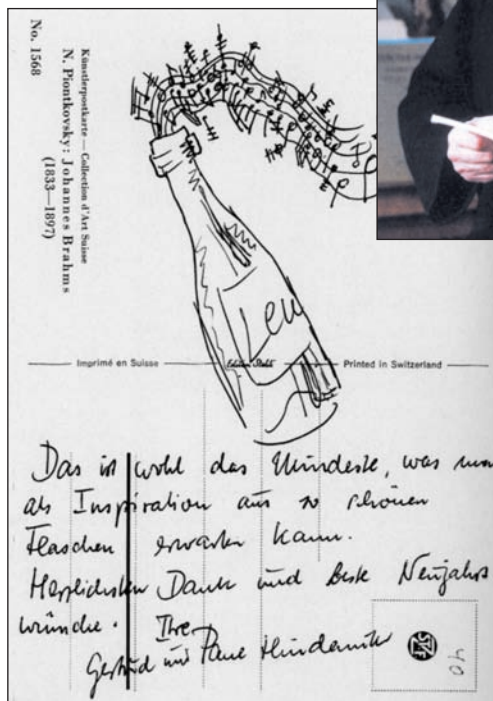 No. 1568
Künstlerpostkarte — Collection d'Art Suisse
N. Piontkovsky: Johannes Brahms
(1833—1897)
Imprimé en Suisse
Printed in Switzerland
Das ist wohl das Mindeste, was man
als Inspiration aus so schönen
Flaschen erwarten kann.
Herzlichsten Dank und beste Neujahrs
wünsche. Ihre
Gertrud und Paul Hindemith
40